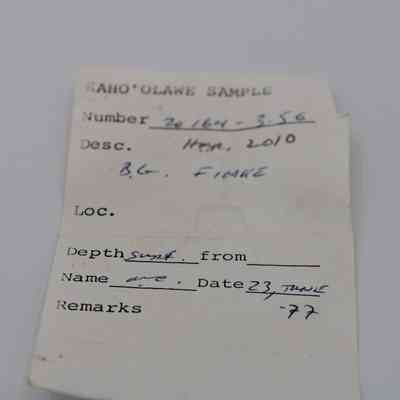 KAHO'OLAWE SAMPLE
Number 20164-3.56
Desc. HER. 2010
B.G.
Loc.
Depth surf. from
Name Date 23, JUNE
Remarks -77